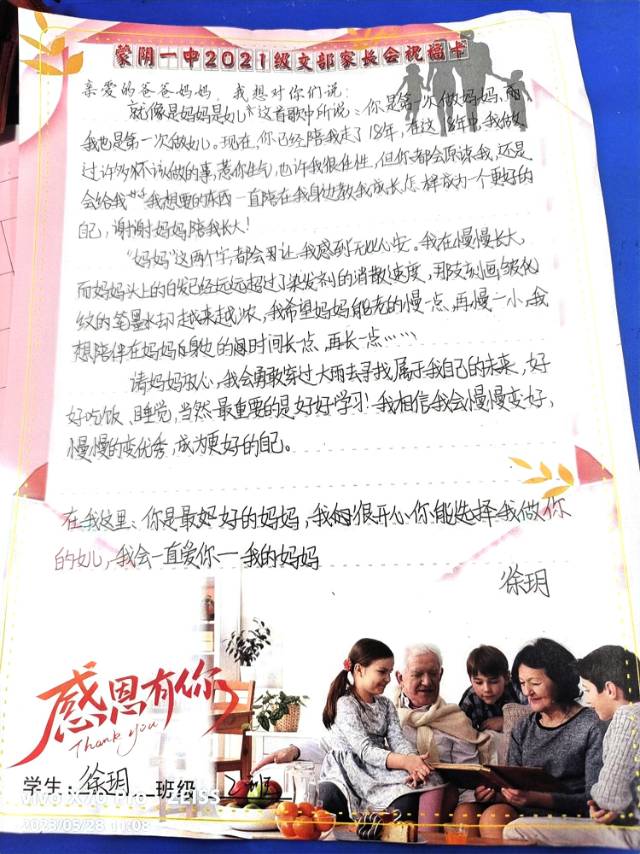 蒙阴一中2021级支部家长会祝福卡
亲爱的爸爸妈妈，我想对你们说：
就像是妈妈是女儿这首歌中所说：你是第一次做妈妈，而
我也是第一次做女儿。现在，你已经陪我走了18年，在这18年中，我做
过许多不该做的事，惹你生气，也许我很任性，但你都会原谅我，还是
会给我我想要的东西一直陪在我身边教我成长，怎样成为一个更好的
自己，谢谢妈妈陪我长大！
"妈妈"这两个字都会让我感到无比心安。我在慢慢长大，
而妈妈头上的白发已经远远超过了染发剂的消散速度，那支刻画皱
纹的笔墨水却越来越浓，我希望妈妈能老的慢一点，再慢一小，我
想陪伴在妈妈身边的时间长一点，再长一点……
请妈妈放心，我会勇敢穿过大雨去寻找属于我自己的未来，好
好吃饭、睡觉，当然最重要的是好好学习！我相信我会慢慢变好，
慢慢的变优秀，成为更好的自己。
在我这里：你是最好的妈妈，我很开心你能选择我做你
的女儿，我会一直爱你——我的妈妈
徐玥
感恩有你
Thank you
学生：徐玥 班级 2班
vivo X70 Pro+ ZEISS
2023/05/28 11:08